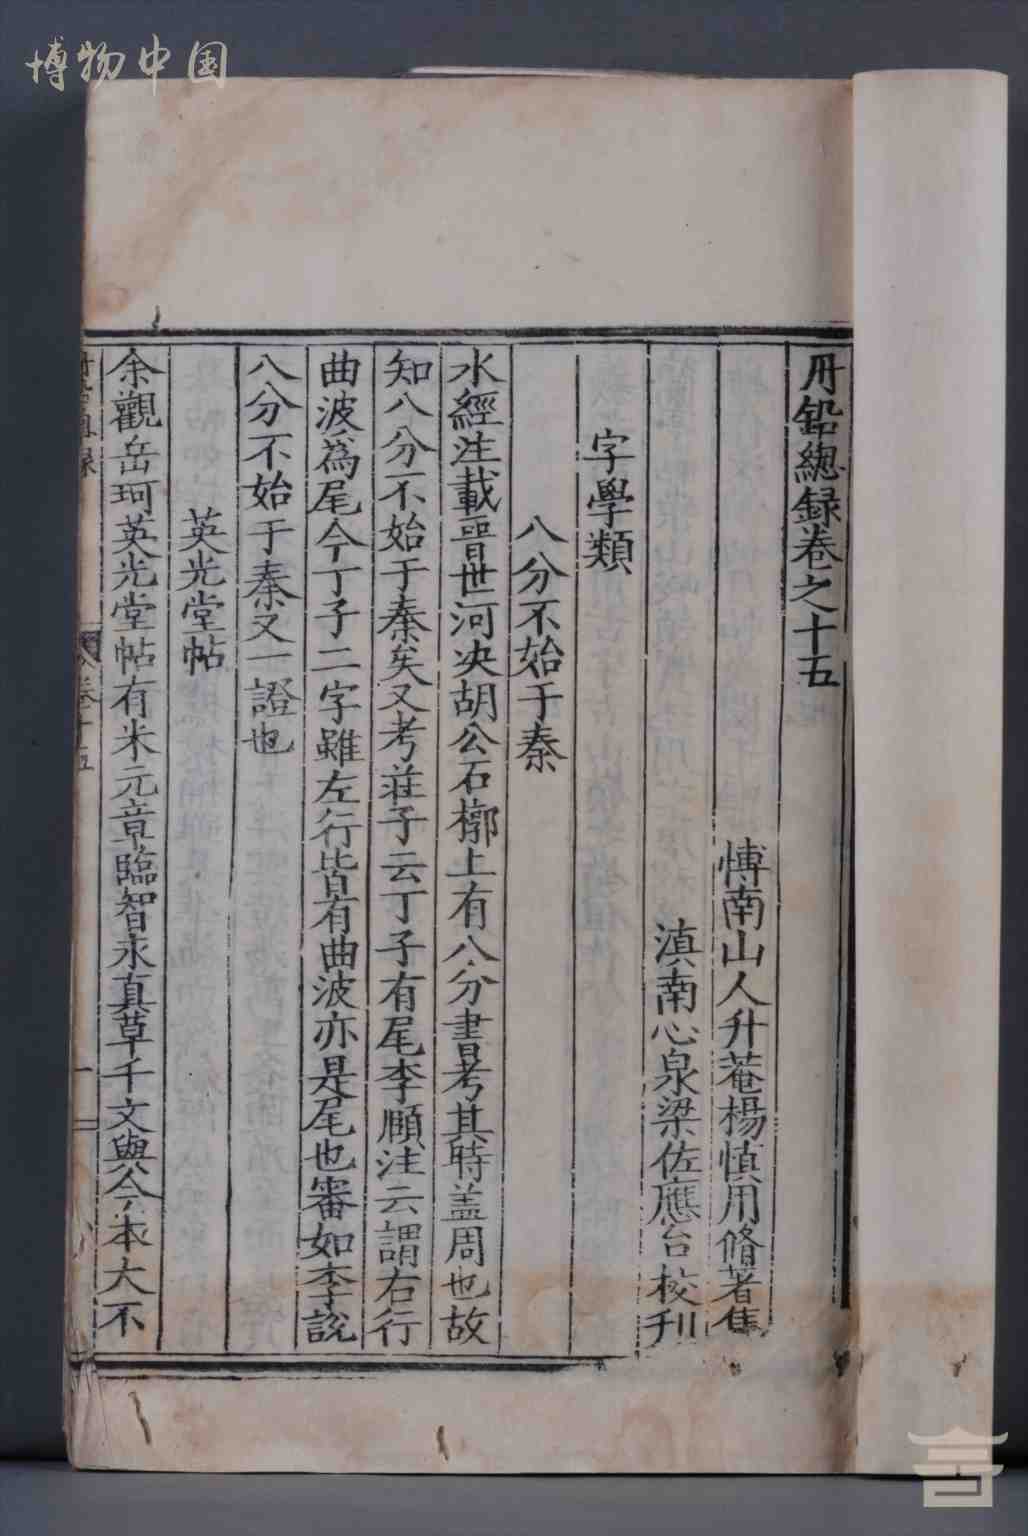 博物中国
丹鉛總録卷之十五
博南山人升菴楊慎用脩著集
滇南心泉梁佐應台校刋
字學類
八分不始于秦
水經注載晋世河决胡公石槨上有八分書考其時盖周也故
知八分不始于秦矣又考莊子云丁子有尾李頤注云謂右行
曲波爲尾今丁子二字雖左行皆有曲波亦是尾也審如李説
八分不始于秦又一證也
英光堂帖
余觀岳珂英光堂帖有米元章臨智永真草千文與今本大不